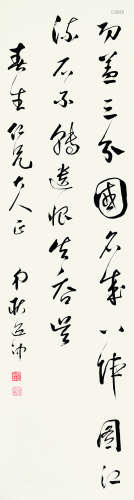 功盖三分國名成八陣圖江
流石不轉遺恨失吞吴
春生仁兄大人正